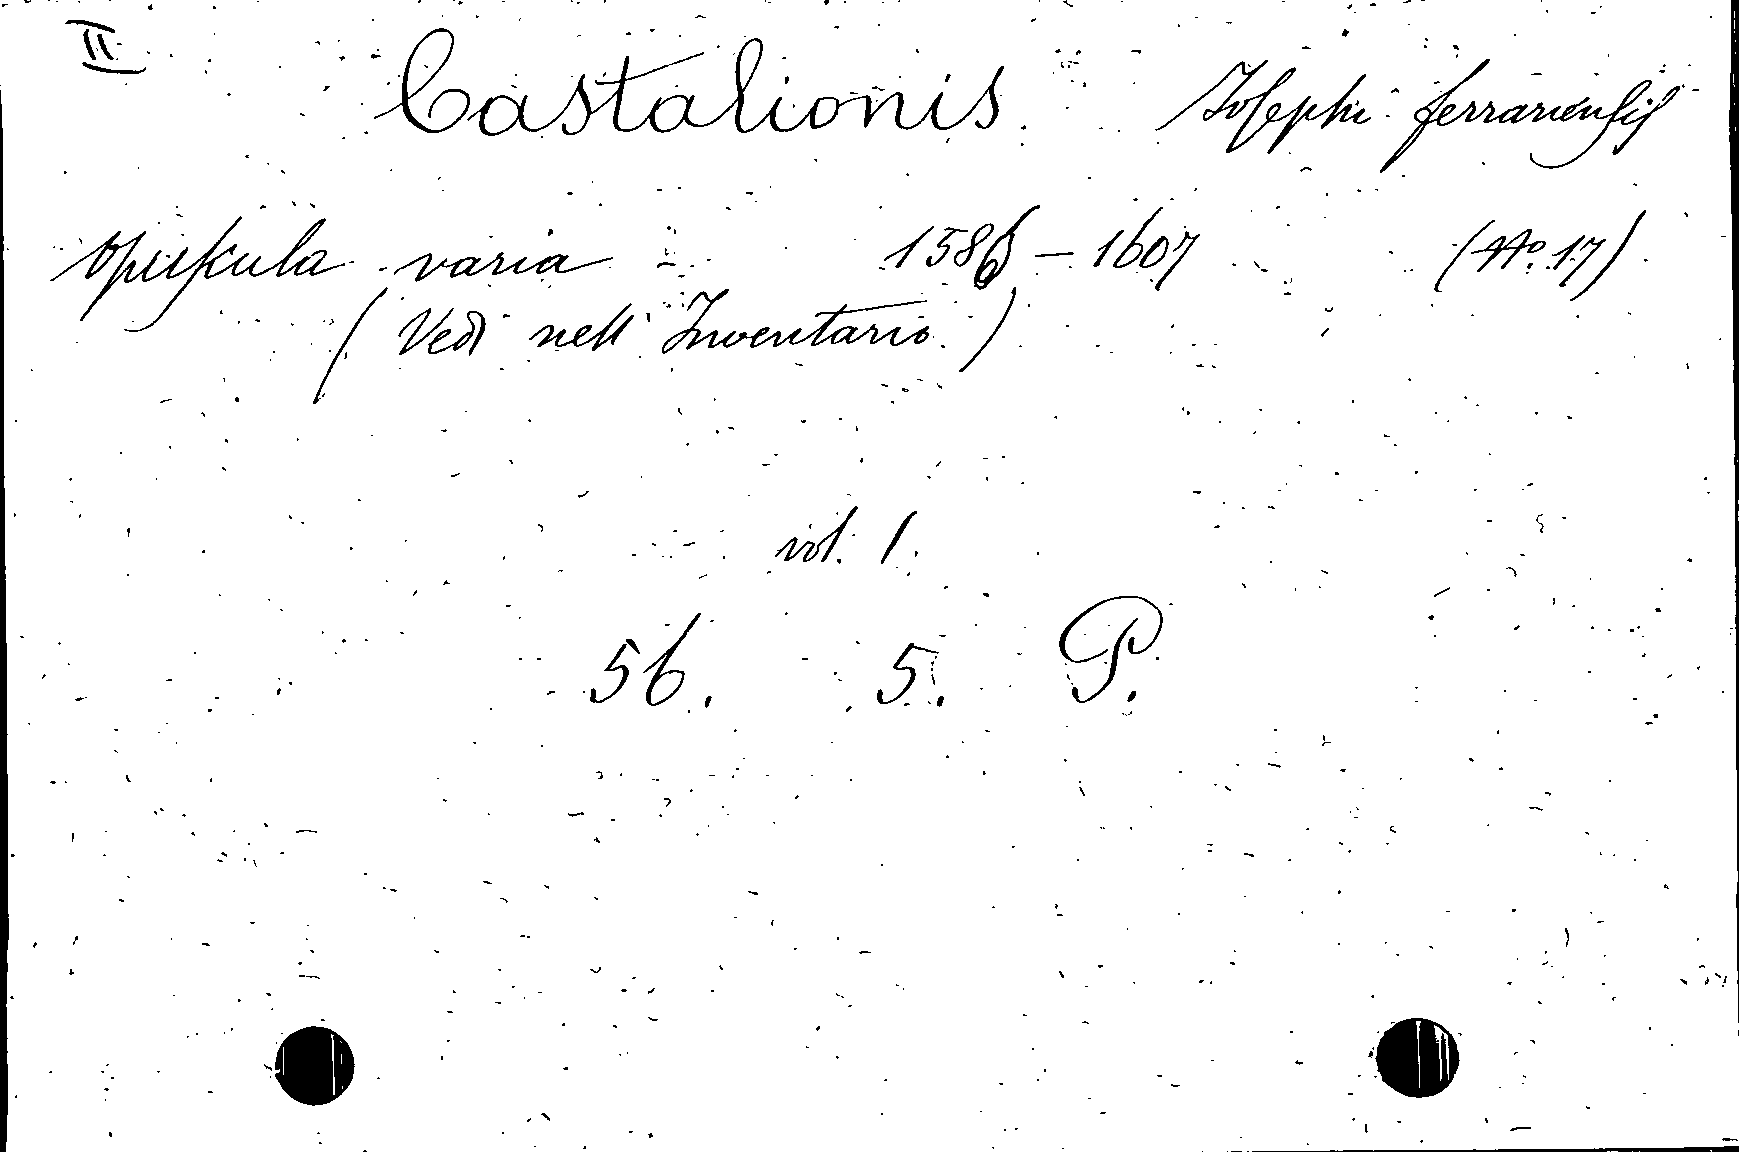 II
Castalionis Josephi ferrariensis
Opuscula varia 1586 – 1607 (No. 17)
(Vedi nell'Inventario.)
vol. 1.
56. 5. P.